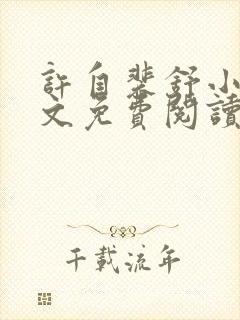 許自斐舒小
文免費閱讀
千載流年